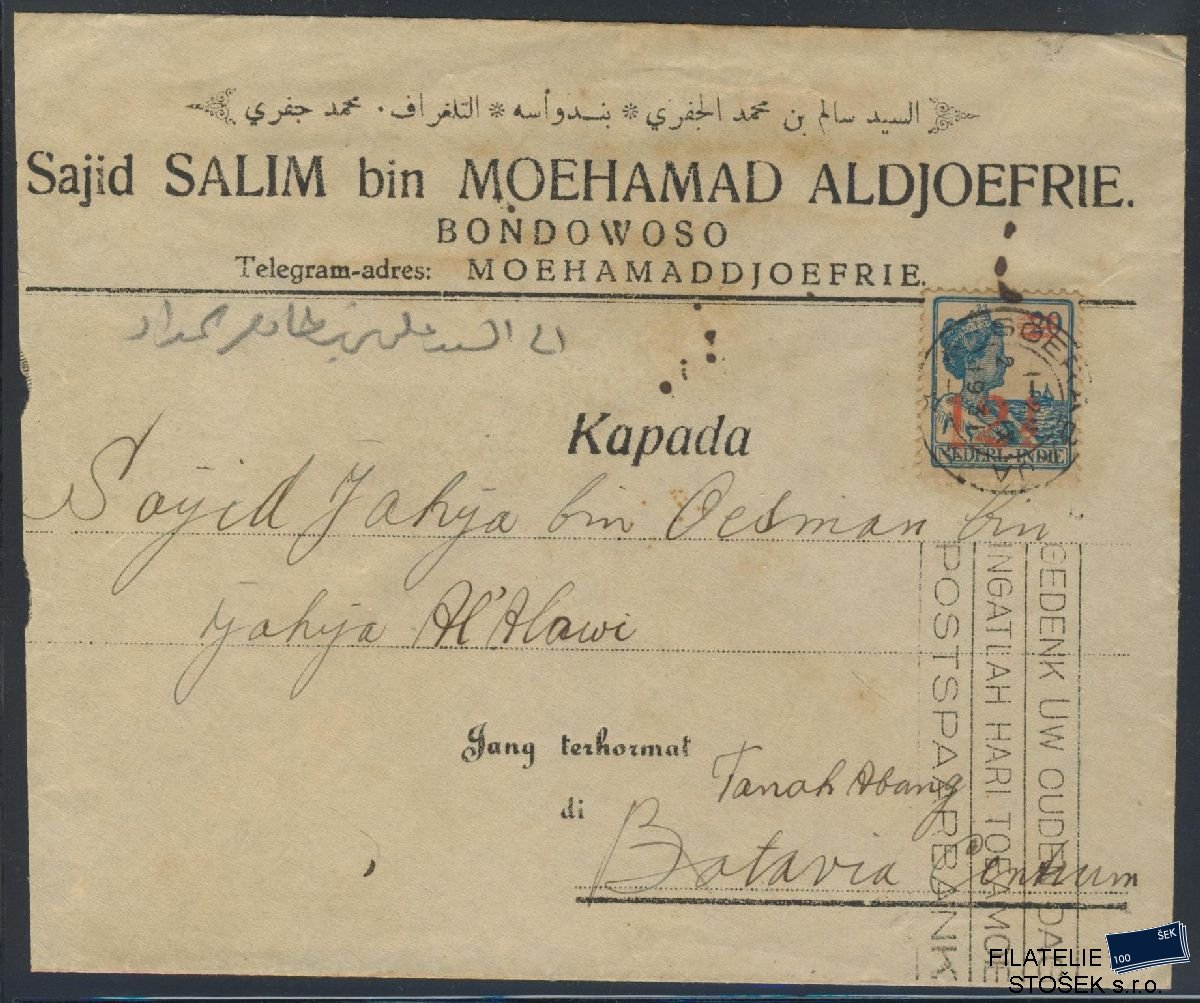 السيد سالم بن محمد الجفري * بندوأسه * التلغراف . محمد جفري
Sajid SALIM bin MOEHAMAD ALDJOEFRIE.
BONDOWOSO
Telegram-adres: MOEHAMADDJOEFRIE.
الى السيد علي بن طاهر الحداد
20
12½
NEDERL-INDIE
SOERABAJA
Kapada
Sayid Jahja bin Oesman bin
Jahja Al'Alawi
Jang terhormat
Tanah Abang
di
Batavia Centrum
GEDENK UW OUDE DAG
INGATLAH HARI TOEAMOE
POSTSPAARBANK
100 ŠEK
FILATELIE
STOŠEK s.r.o.